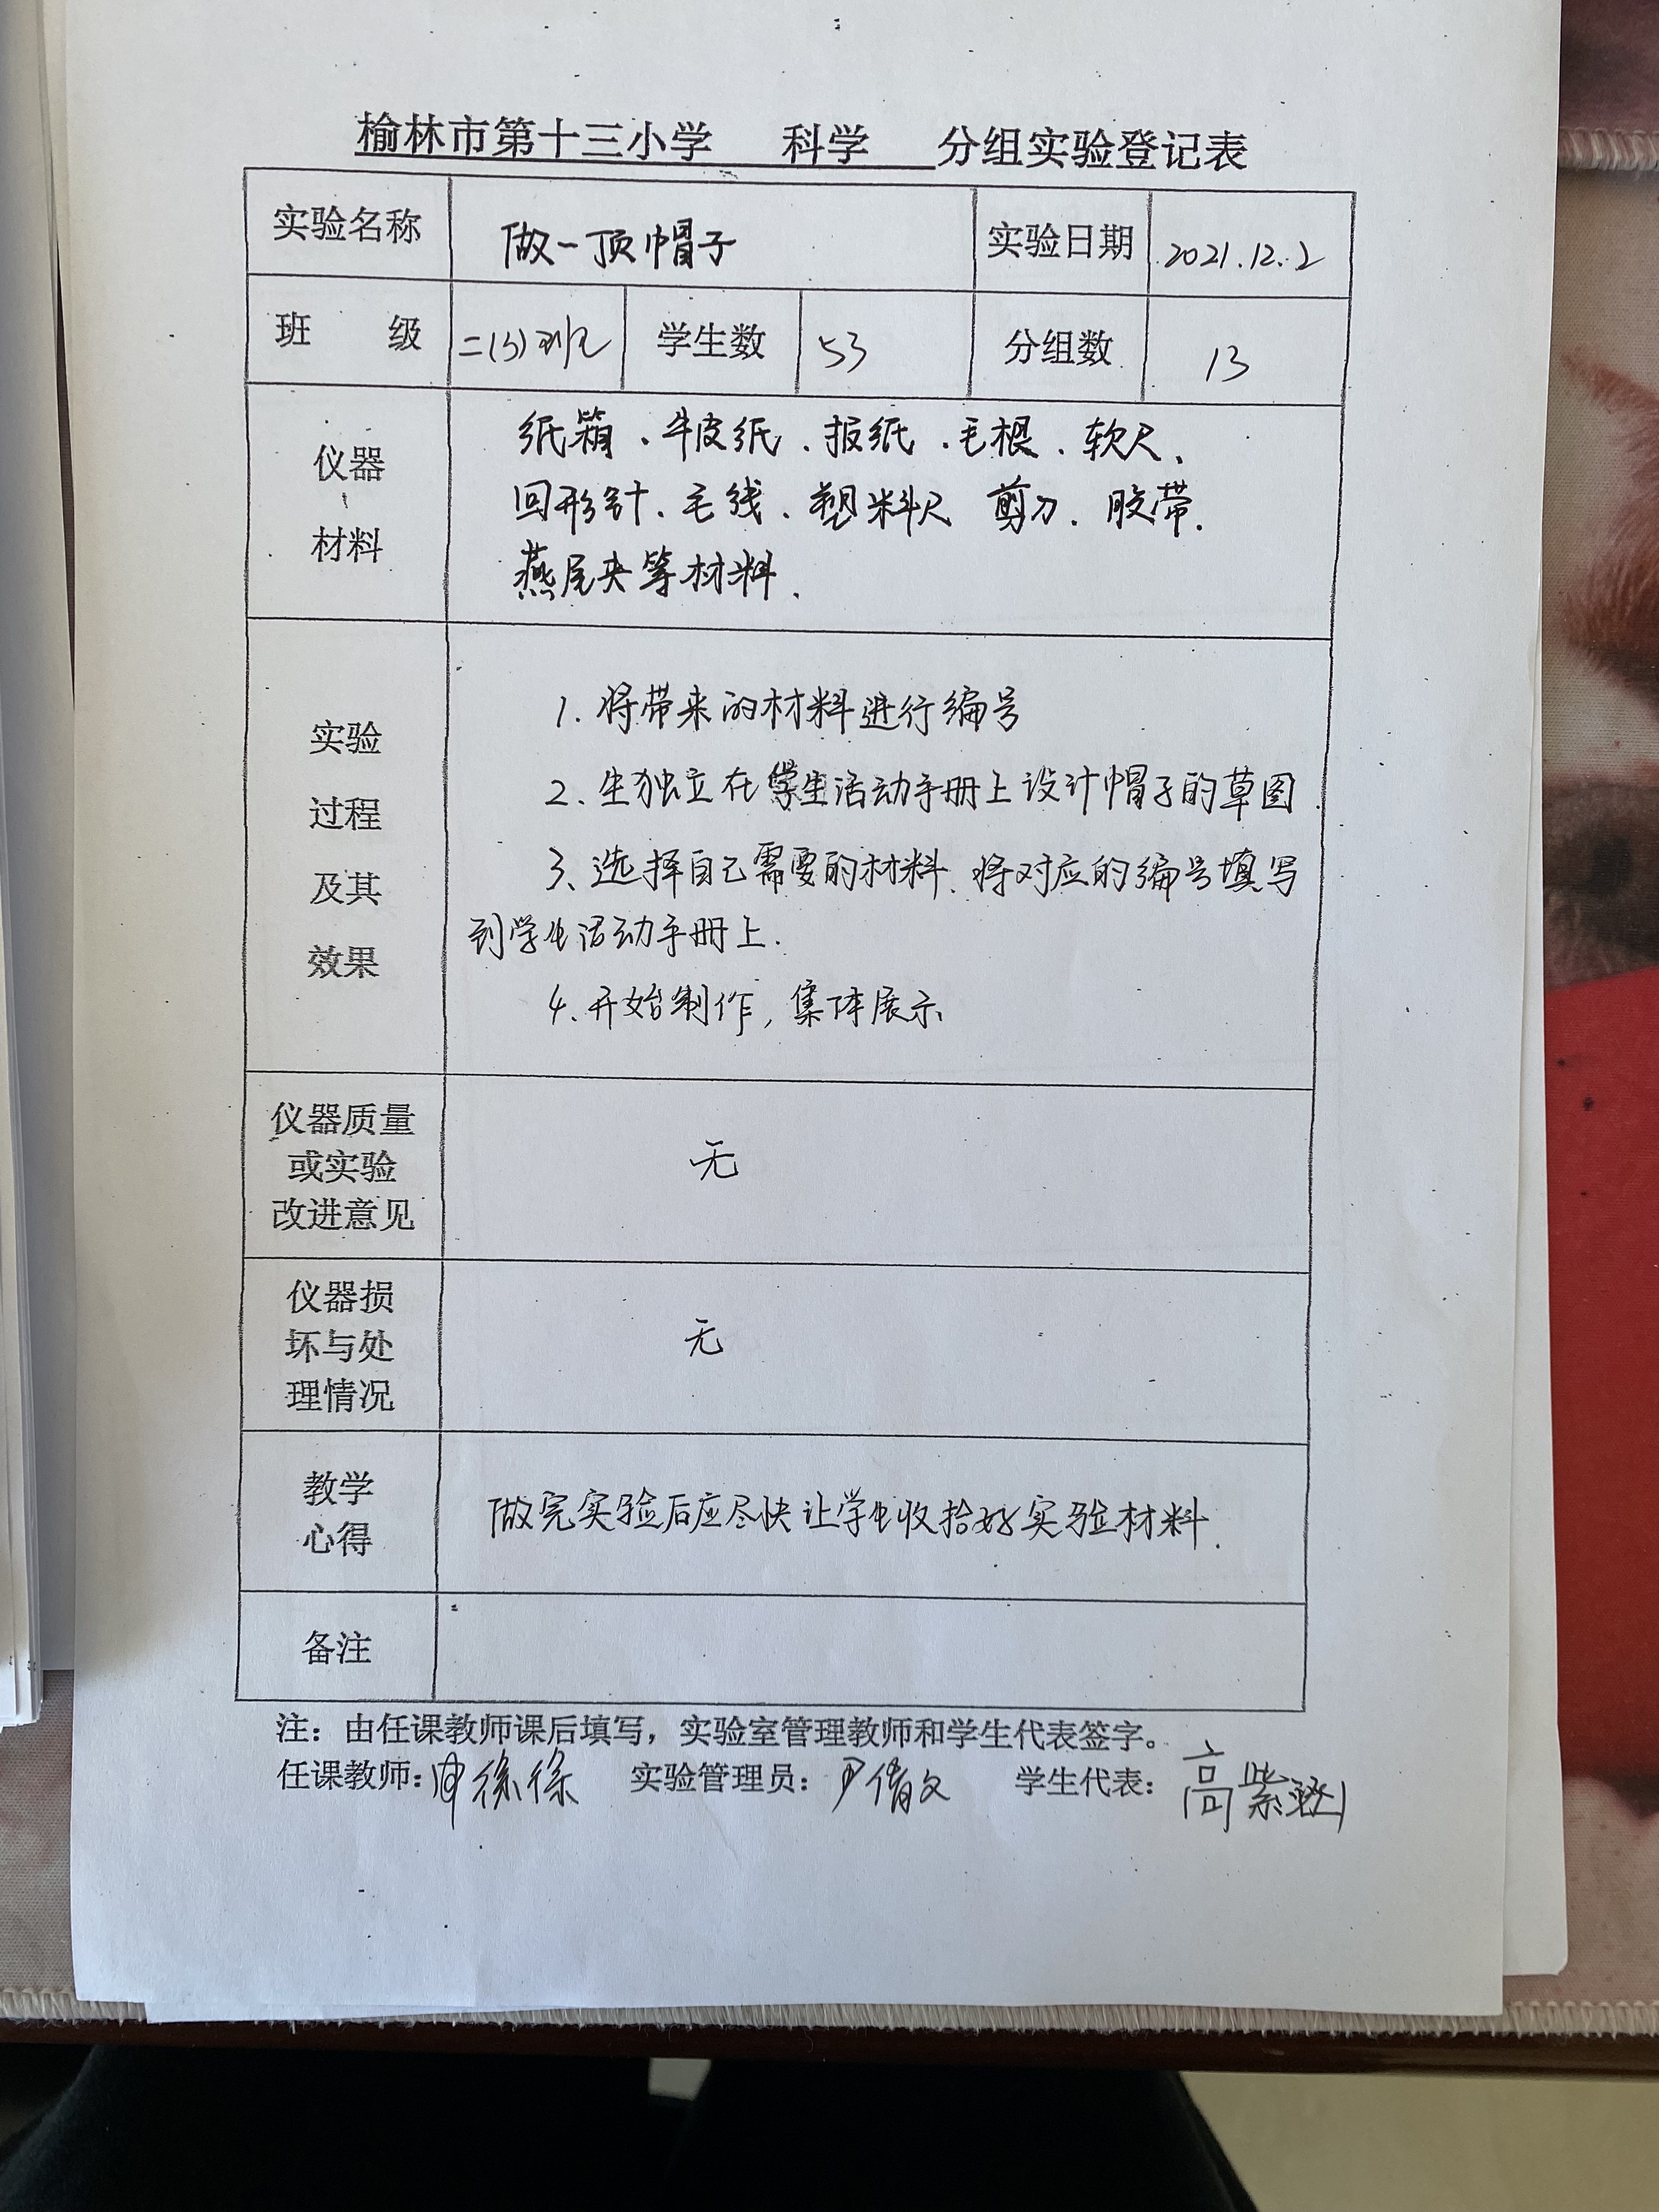 榆林市第十三小学 科学 分组实验登记表
实验名称 做一顶帽子 实验日期 2021.12.2
班 级 二(5)班 学生数 53 分组数 13
仪器
材料
纸箱、牛皮纸、报纸、毛根、软尺、
回形针、毛线、塑料尺 剪刀、胶带、
燕尾夹等材料.
实验
过程
及其
效果
1. 将带来的材料进行编号
2、生独立在学生活动手册上设计帽子的草图
3、选择自己需要的材料、将对应的编号填写
到学生活动手册上.
4、开始制作,集体展示
仪器质量
或实验
改进意见
无
仪器损
坏与处
理情况
无
教学
心得
做完实验后应尽快让学生收拾好实验材料.
备注
注：由任课教师课后填写，实验室管理教师和学生代表签字。
任课教师： 实验管理员：尹倩文 学生代表：高紫涵